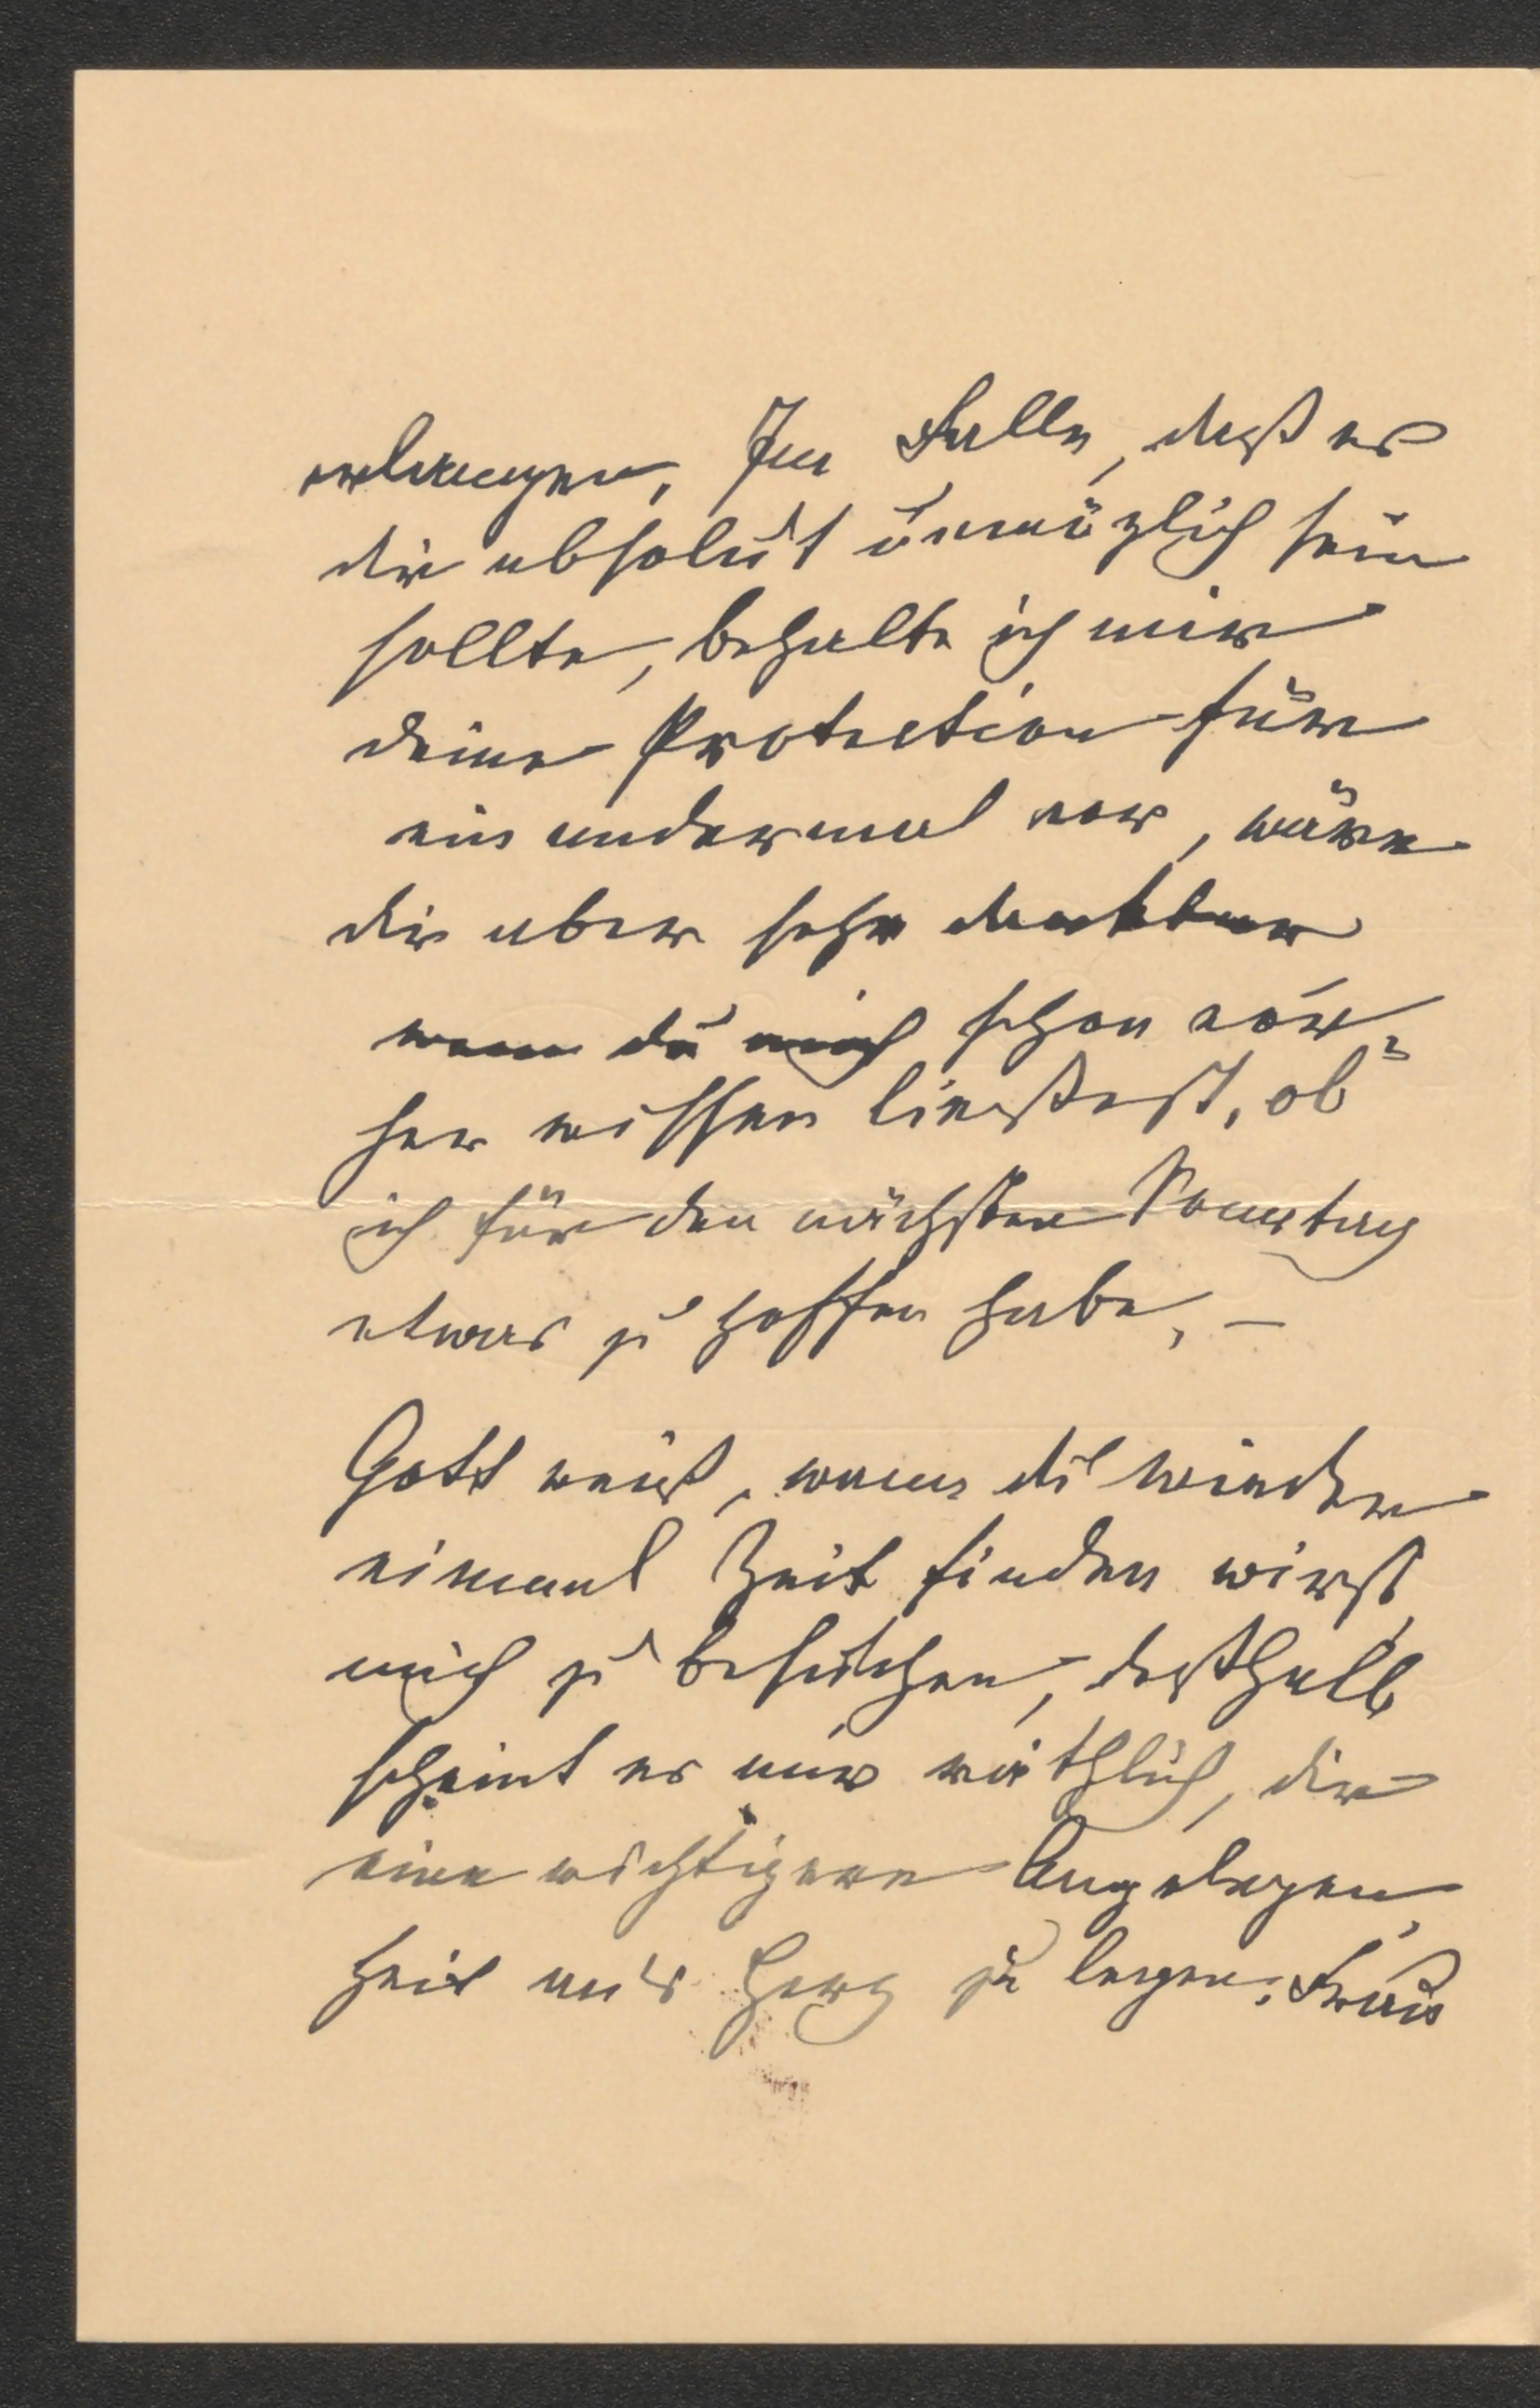 erlangen. Im Falle, daß es
dir absolut unmöglich sein
sollte, behalte ich mir
deine Protection für
ein andermal vor, wäre
dir aber sehr dankbar
wenn du mich schon vor-
her wissen ließest, ob
ich für den nächsten Sonntag
etwas zu hoffen habe. –
Gott weiß, wann du wieder
einmal Zeit finden wirst,
mich zu besuchen, deßhalb
scheint es mir räthlich, dir
eine wichtigere Angelegen-
heit an's Herz zu legen: Frau